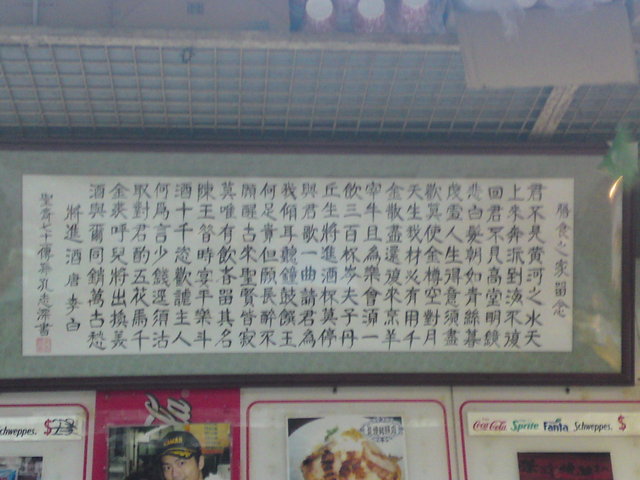 膳食之家留念
君不見黃河之水天
上來奔流到海不復
回君不見高堂明鏡
悲白髮朝如青絲暮
成雪人生得意須盡
歡莫使金樽空對月
天生我材必有用千
金散盡還復來烹羊
宰牛且為樂會須一
飲三百杯岑夫子丹
丘生將進酒杯莫停
與君歌一曲請君為
我傾耳聽鐘鼓饌玉
何足貴但願長醉不
願醒古來聖賢皆寂
莫唯有飲者留其名
陳王昔時宴平樂斗
酒十千恣歡謔主人
何為言少錢逕須沽
取對君酌五花馬千
金裘呼兒將出換美
酒與爾同銷萬古愁
將進酒 唐 李白
孔志深書
Schweppes. $
Coca-Cola Sprite Fanta Schweppes. $